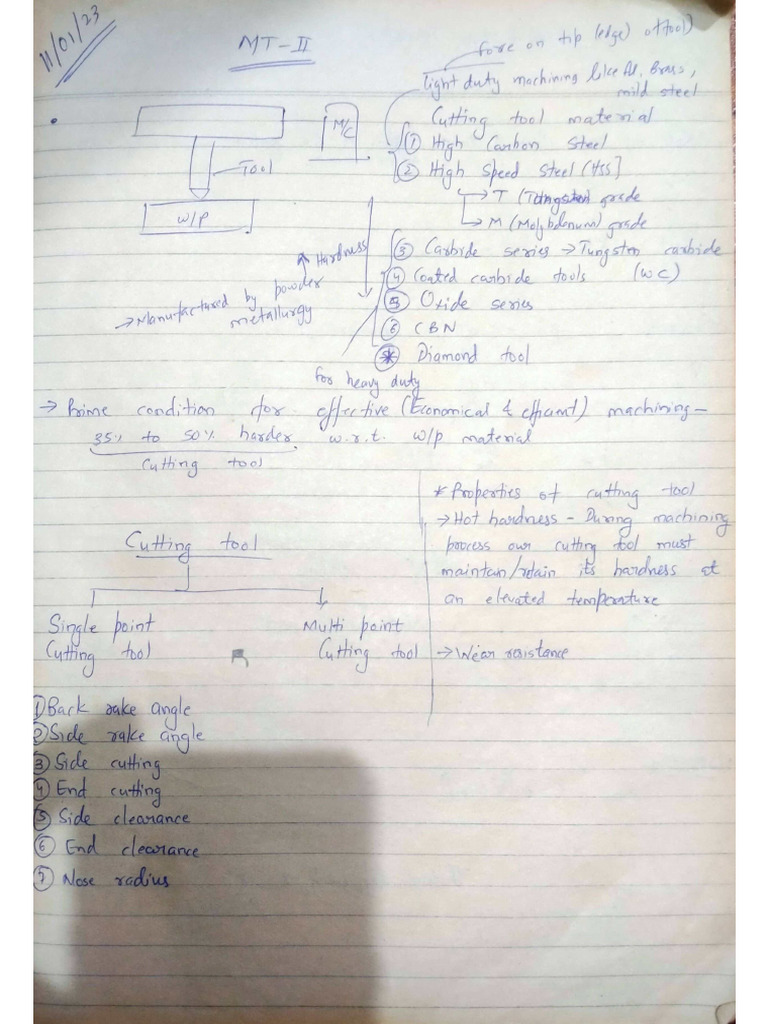 11/01/23
MT-II
force on tip (edge) of tool)
light duty machining like Al, Brass,
mild steel
Cutting tool material
M/C
① High Carbon Steel
Tool
② High Speed Steel (HSS]
→ T (Tungsten) grade
W/P
→ M (Molybdenum) grade
③ Carbide series → Tungsten carbide
Hardness
④ Coated carbide tools (WC)
→ Manufactured by powder
metallurgy
⑤ Oxide series
⑥ CBN
* Diamond tool
for heavy duty
→ Prime condition for effective (Economical & efficient) machining -
35% to 50% harder w.r.t. w/p material
Cutting tool
Cutting tool
Single point
Cutting tool
Multi point
Cutting tool
* Properties of cutting tool
→ Hot hardness - During machining
process our cutting tool must
maintain/retain its hardness at
an elevated temperature
→ Wear resistance
① Back rake angle
② Side rake angle
③ Side cutting
④ End cutting
⑤ Side clearance
⑥ End clearance
⑦ Nose radius